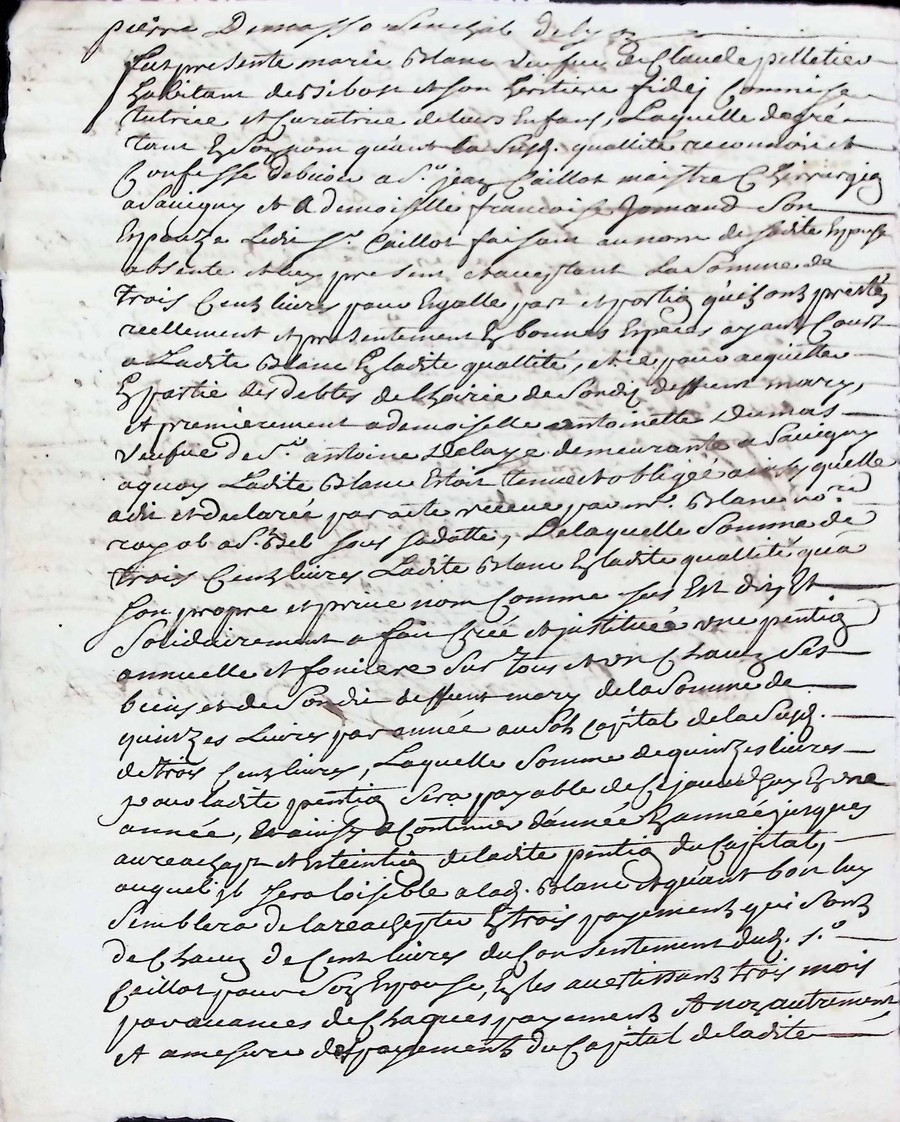 pierre Demasso Senechal de lyon
fut presente marie Blanc veufue de Claude pelletier
habitant de Sibost et son heritiere fidei Commise
tutrice et curatrice de leurs Enfans, Laquelle de gré
tant En Son nom qu'aut la Susd. quallité reconnoit et
Confesse debuoir a Sr. jean Caillot maistre Chirurgien
a Sauigny et a demoiselle francoise Jomand Son
Espouze Ledit Sr. Caillot faisant au nom de sadite Espouse
absente et luy present et acceptant La Somme de
trois Centz liures pour Esgalle part et portion qu'ils ont prestéz
reellement et presentement En bonnes Especes ayant Court
a Ladite Blanc En ladite quallité, et ce pour acquitter
En partie des debtes de l'hoirie de Sondit deffunt mary,
et premierement a demoiselle antoinette Dumas
veufue de Sr. antoine Delaye demeurante a Sauigny
a quoy Ladite Blanc Estoit tenue et obligée ainsy quelle
a dit et declaré par acte receue par me. Blanc no.re
royal a St. Bel Sous Sa datte, De laquelle Somme de
trois Centz liures Ladite Blanc En ladite quallité qu'a
Son propre et priué nom Comme Sus Est dit, Et
Solidairement a fait Créé et justitué vne pention
annuelle et fonciere Sur tous et vn Chacun Ses
biens et de Sondit deffunt mary de la Somme de
quintzes Liures par année au Sol Capital de la Susd.
de trois Centz liures, Laquelle Somme de quintzes liures
pour ladite pention Sera payable de Ce jourdhuy En vne
année, Et ainsy a Continuer d'année En année jusques
au reachapt et Esteintion de ladite pention du Capital,
auquel il Sera loisible a lad. Blanc et quant bon luy
Semblera de la reachepter En trois payementz qui Sont
de Chacun de Cent liures du Consentement dud. Sr.
Caillot pour Son Espouse, En les auertissant trois mois
par auances de Chaques payementz Et non autrement
Et a mesure des payementz du Capital de ladite